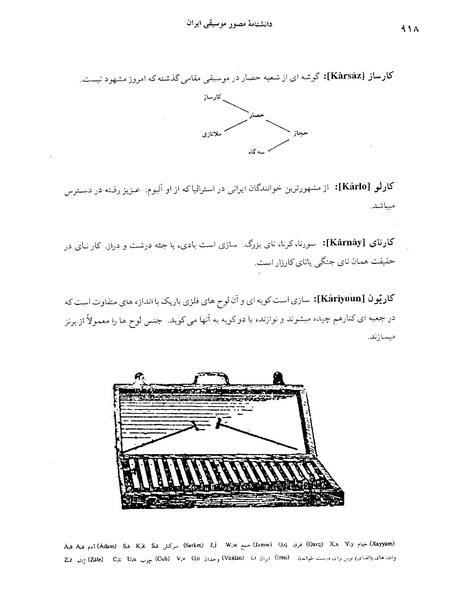 دانشنامهٔ مصور موسیقی ایران
۹۱۸
کارساز [Kârsâz]: گوشه ای از شعبه حصار در موسیقی مقامی گذشته که امروز مشهود نیست.
کارساز
حصار
ملانازی
حجاز
سه گاه
کارلو [Kârlo]: از مشهورترین خوانندگان ایرانی در استرالیا که از او آلبوم: عزیز رفته در دسترس
میباشد.
کارنای [Kârnây]: سورنا، کرنا، نای بزرگ. سازی است بادی، با جثه درشت و دراز. کار نای در
حقیقت همان نای جنگی یانای کارزار است.
کاریّون [Kâriyoun]: سازی است کوبه ای و آن لوح های فلزی باریک با اندازه های متفاوت است که
در جعبه ای کنارهم چیده میشوند و نوازنده با دو کوبه به آنها می کوبد. جنس لوح ها را معمولاً از برنز
میسازند.
Â,â A,a آدم (Âdam) S,s K,k Š,š سرکش (Sarkeš) J,j جمع (Jamw) W,w غرق (Qarq) Q,q X,x Y,y خیام (Xayyam)
وات های (الفبای) نوین برای درست خواندن ایران (Irân) I,i وجدان (Vojdan) V,v O,o چوب (Čub) Č,č U,u ژاله (Žâle) Ž,ž